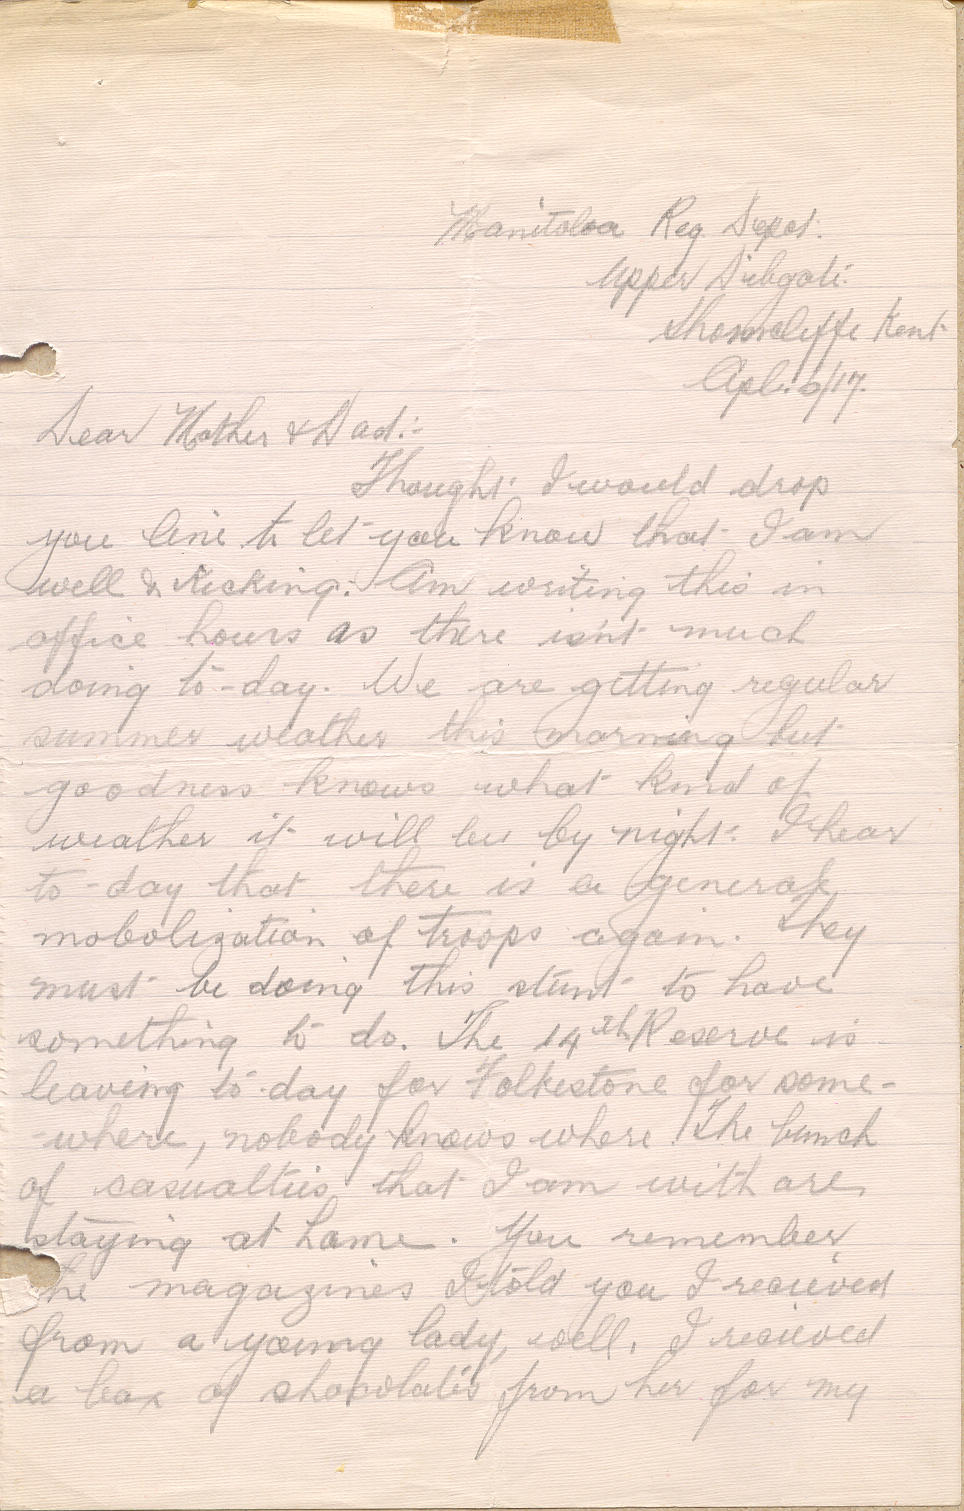 Manitoba Reg. Depot.
Upper Dibgate.
Shorncliffe Kent
Apl. 6/17.
Dear Mother & Dad:-
Thought I would drop
you line to let you know that I am
well & kicking. Am writing this in
office hours as there isn't much
doing to-day. We are getting regular
summer weather this morning but
goodness knows what kind of
weather it will be by night. I hear
to-day that there is a general
mobolization of troops again. They
must be doing this stunt to have
something to do. The 14th Reserve is
leaving to-day for Folkestone for some-
-where, nobody knows where. The bunch
of casualties that I am with are
staying at home. You remember
the magazines I told you I recieved
from a young lady, well, I recieved
a box of chocolates from her for my